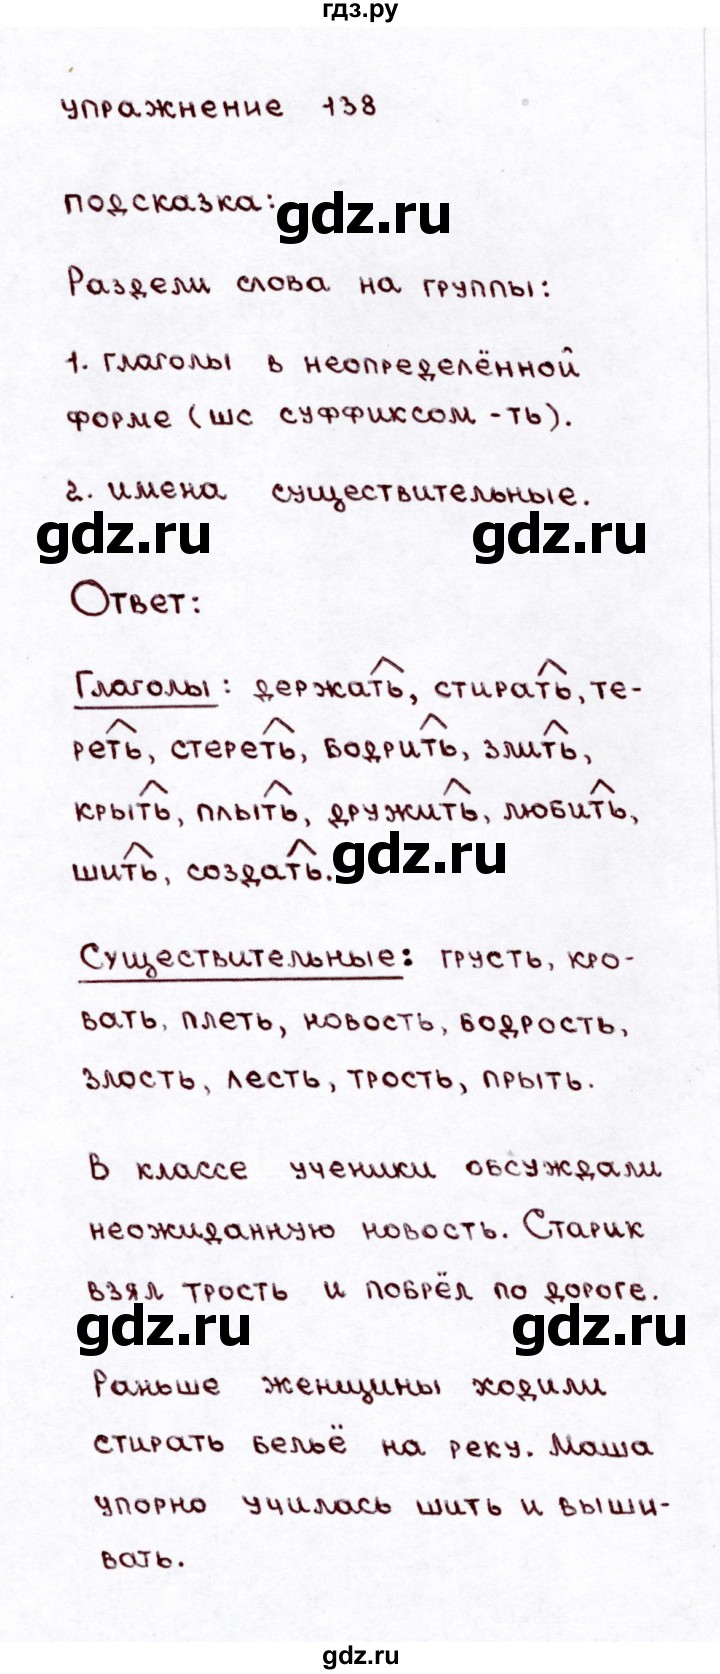 гдз.ру
упражнение 138
подсказка:
gdz.ru
Раздели слова на группы:
1. глаголы в неопределённой
форме (шс суффиксом -ть).
2. имена существительные.
gdz.ru gdz.ru
Ответ:
Глаголы: держать, стирать, те-
реть, стереть, бодрить, злить,
крыть, плыть, дружить, любить,
шить, создать.
gdz.ru
Существительные: грусть, кро-
вать, плеть, новость, бодрость,
злость, лесть, трость, прыть.
В классе ученики обсуждали
неожиданную новость. Старик
взял трость и побрёл по дороге.
gdz.ru gdz.ru
Раньше женщины ходили
стирать бельё на реку. Маша
упорно училась шить и выши-
вать.
gdz.ru